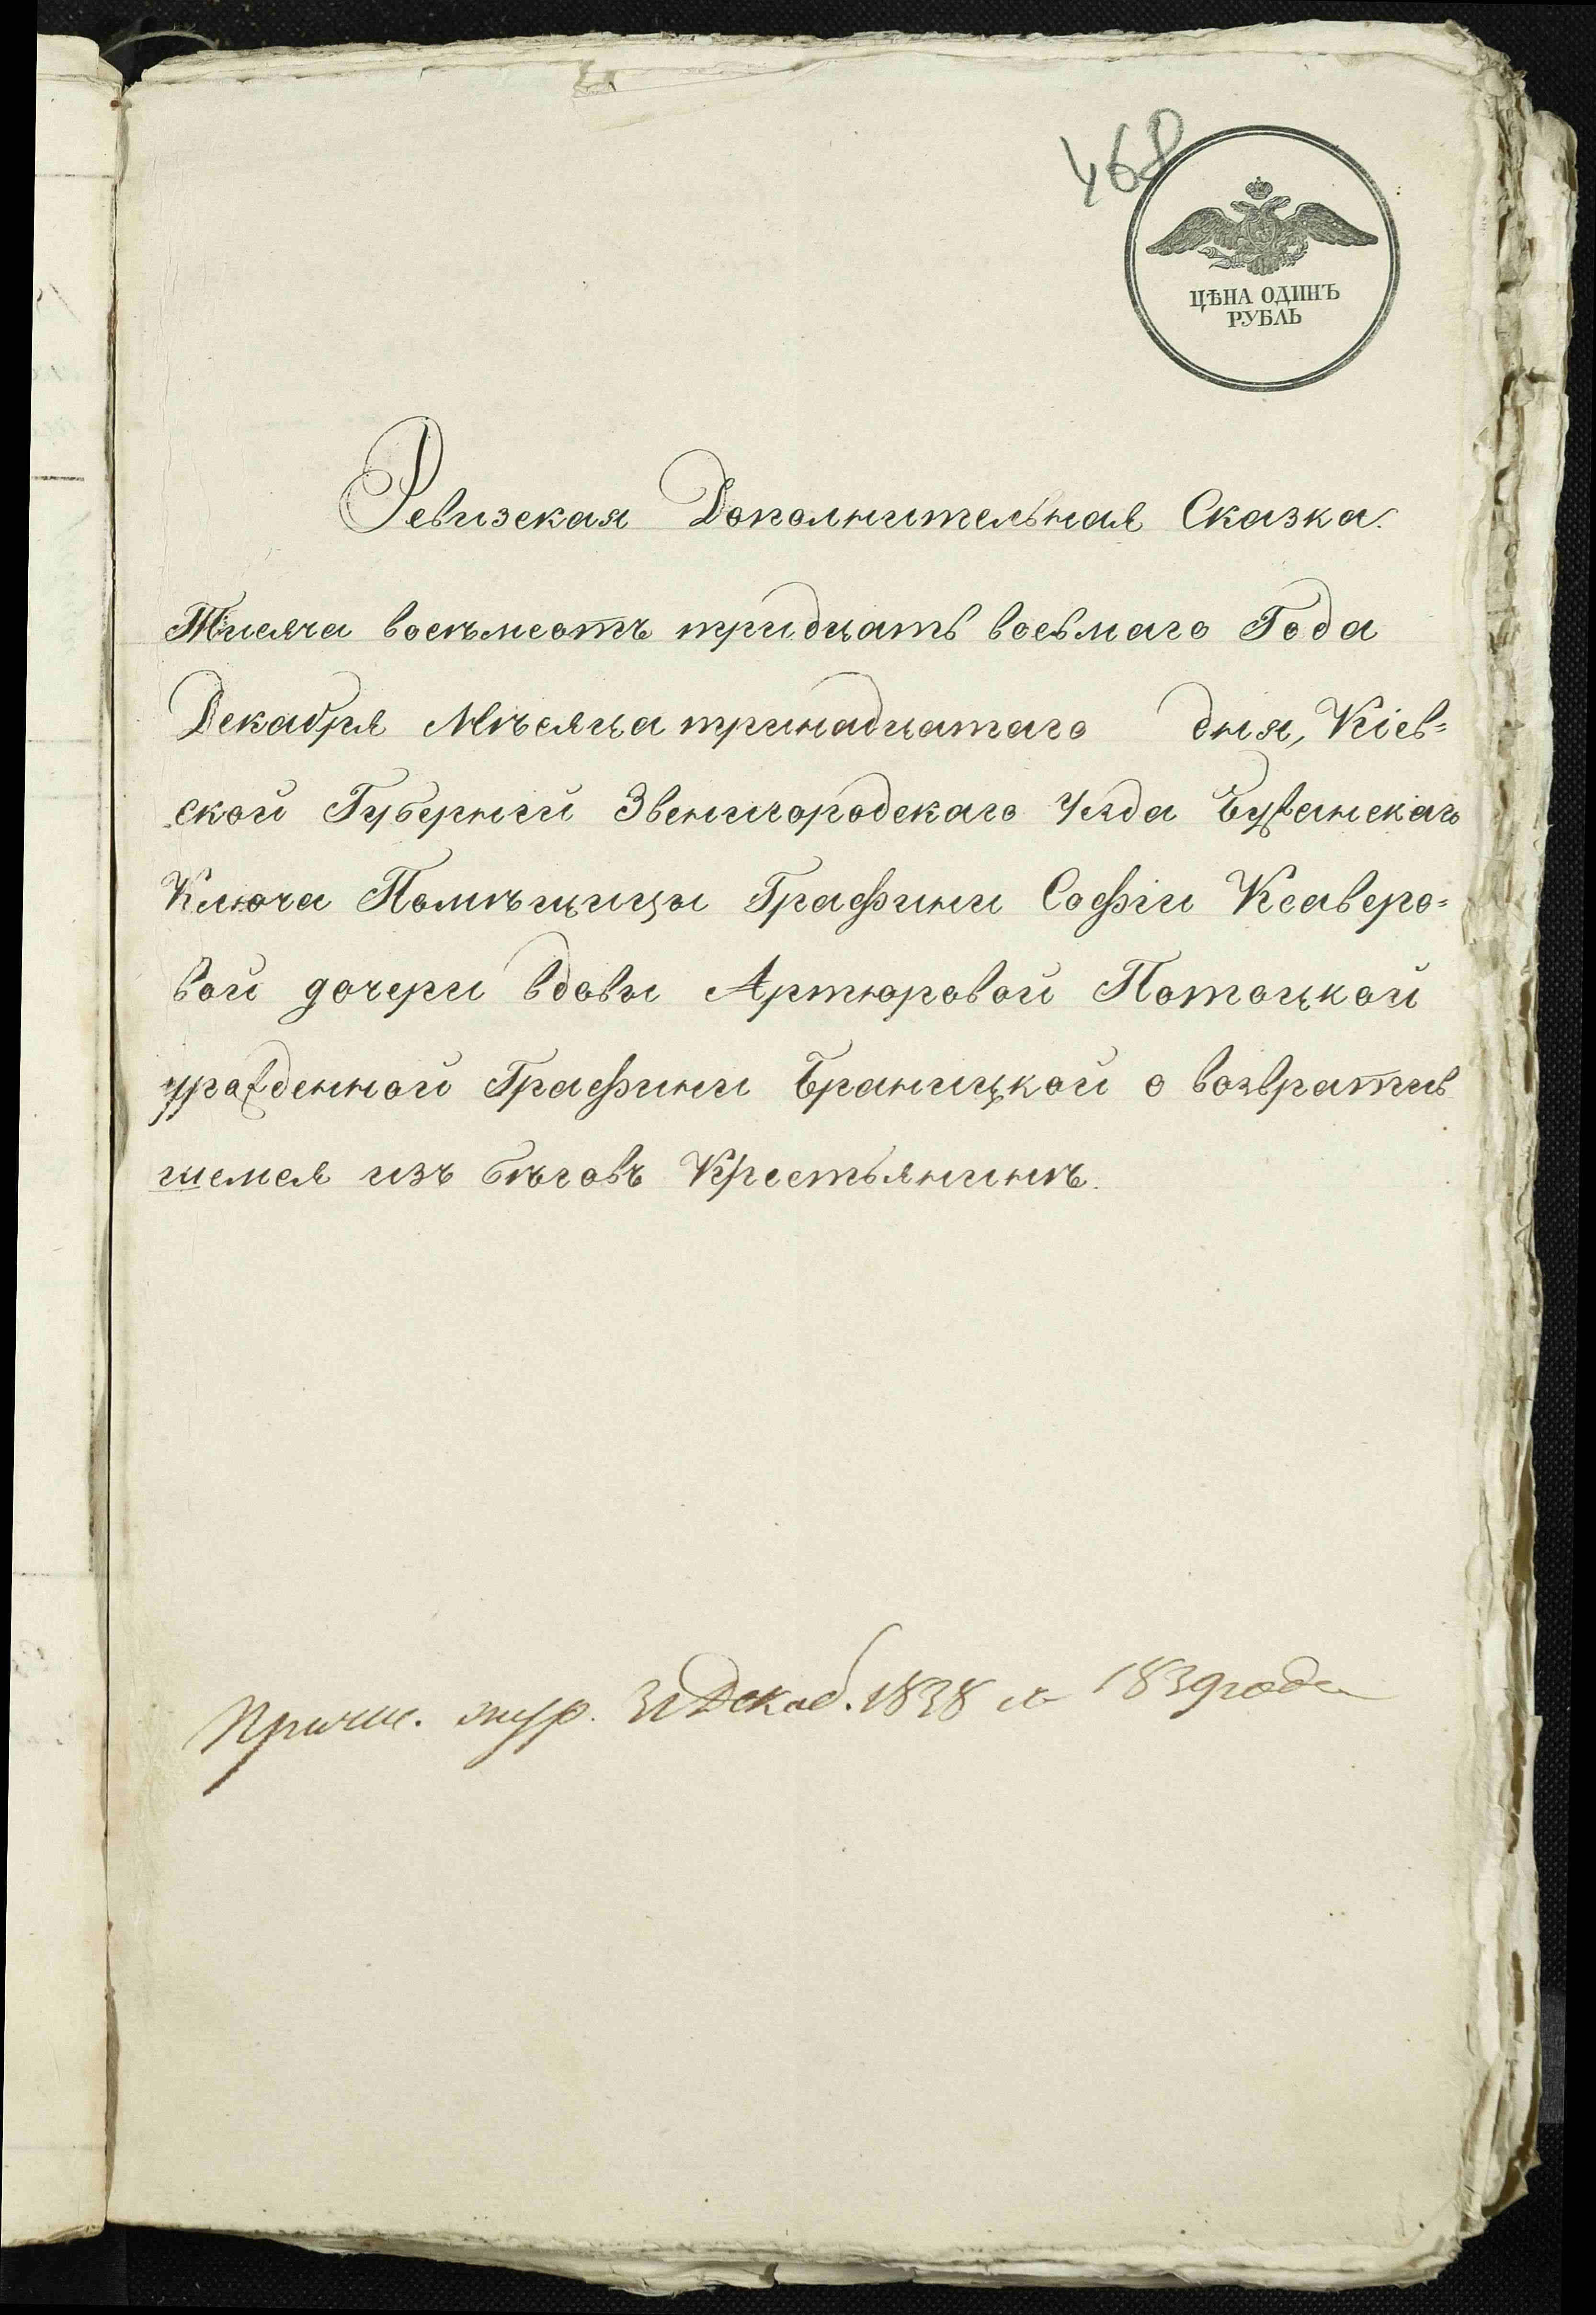 468
ЦѢНА ОДИНЪ
РУБЛЬ
Ревизская Дополнительная Сказка.
Тисяча восѣмсотъ тридцать восьмаго Года
Декабря Мѣсяца тринадцатаго дня, Кіев=
ской Губерніи Звенигородскаго Уезда Бужанскаго
Ключа Помѣщицы Графини Софіи Ксаверо=
вой дочери вдовы Артюровой Потоцкой
урожденной Графини Браницкой о возвратив
шемся изъ бѣговъ Крестьянинѣ.
Причис. жур. 31 Декаб. 1838 1839 года